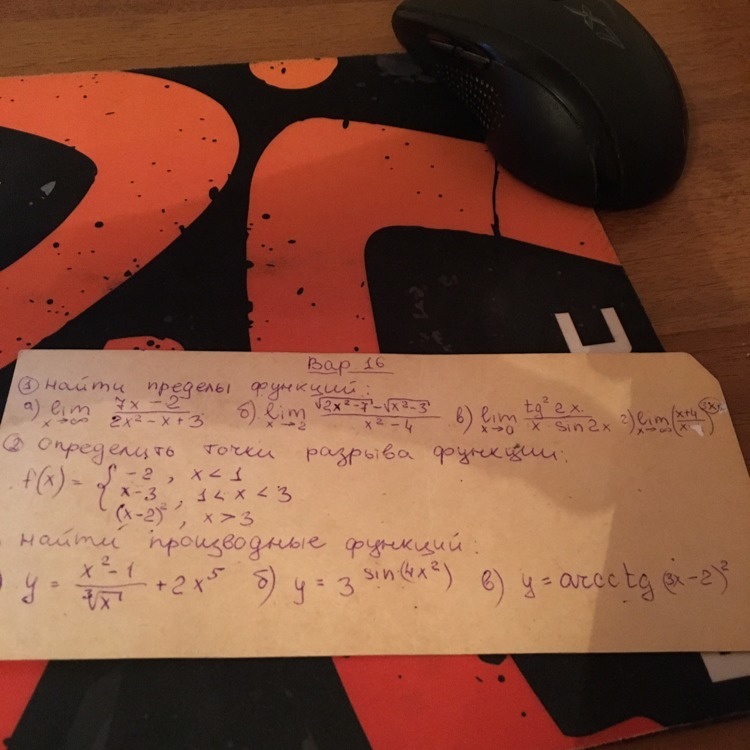 Вар 16
① Найти пределы функций:
а) lim x→∞ (7x-2)/(2x²-x+3) б) lim x→2 (√(2x²-7)-√(x²-3))/(x²-4) в) lim x→0 (tg² 2x)/(x sin 2x) г) lim x→∞ (x+4)/x
② Определить точки разрыва функции:
f(x) = { -2, x<1
x-3, 1<x<3
(x-2)², x>3
найти производные функций:
) y = (x²-1)/∛x + 2x⁵ б) y = 3^sin(4x²) в) y = arcctg (3x-2)²